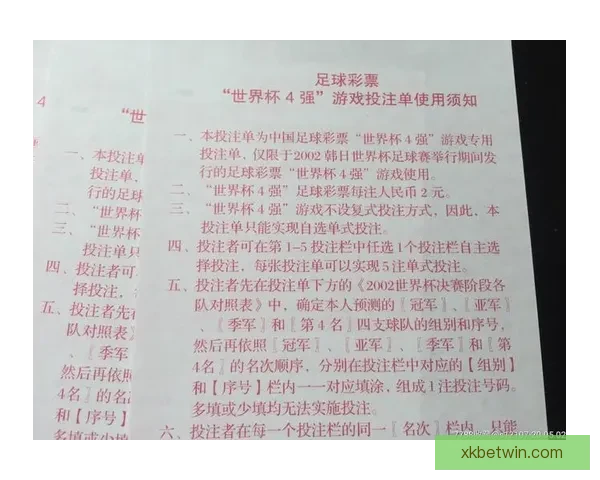 足球彩票
“世界杯 4 强”游戏投注单使用须知
一、本投注单为中国足球彩票“世界杯 4 强”游戏专用
投注单，仅限于2002 韩日世界杯足球赛举行期间发
行的足球彩票“世界杯 4 强”游戏使用。
二、“世界杯 4 强”足球彩票每注人民币 2 元。
三、“世界杯 4 强”游戏不设复式投注方式，因此，本
投注单只能实现自选单式投注。
四、投注者可在第 1–5 投注栏中任选 1个投注栏自主选
择投注，每张投注单可以实现 5 注单式投注。
五、投注者先在投注单下方的《2002世界杯决赛阶段各
队对照表》中，确定本人预测的〖冠军〗、〖亚军〗
、〖季军〗和〖第 4 名〗四支球队的组别和序号，
然后再依照〖冠军〗、〖亚军〗、〖季军〗和〖第
4名〗的名次顺序，分别在投注栏中对应的【组别】
和【序号】栏内一一对应填涂，组成 1 注投注号码。
多填或少填均无法实施投注。
六、投注者在每一个投注栏的同一〖名次〗栏内，只能
4
“世
一、本投注单
投注单，
行的足球
二、“世界杯
三、“世界杯
投注单只
四、投注者可
择投注，
五、投注者先在
队对照表》
、〖季军
然后再依照
4名〗的名
和【序号】
多填或少填
xkbetwin.com